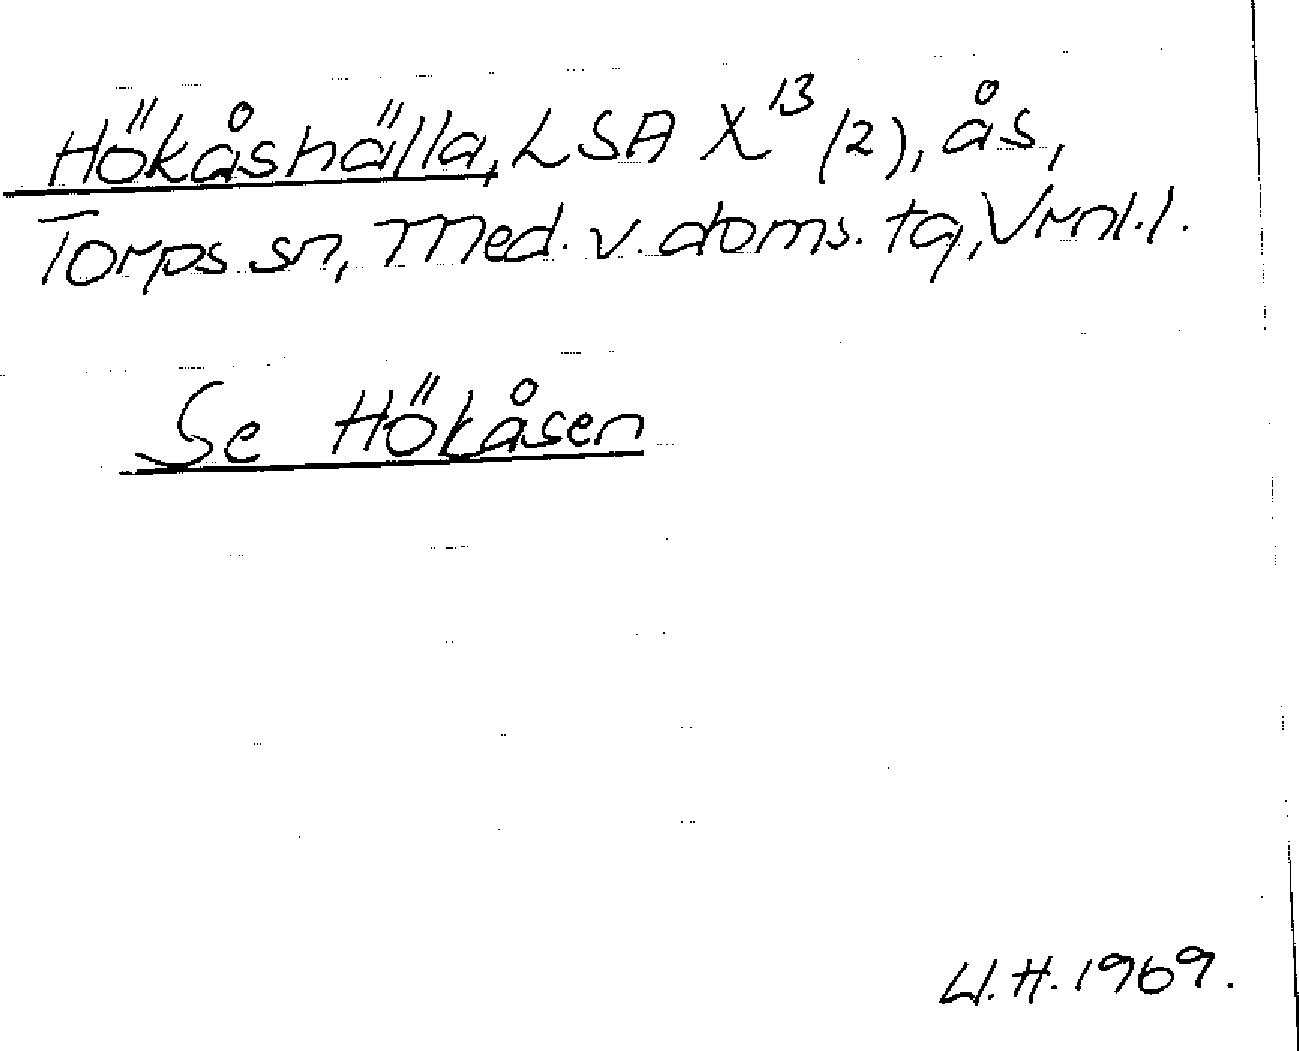 Hökåshälla, LSA X¹³ (2), ås,
Torps sn, Med. v. doms. tg, Vrnl. l.
Se Hökåsen
U.H. 1969.